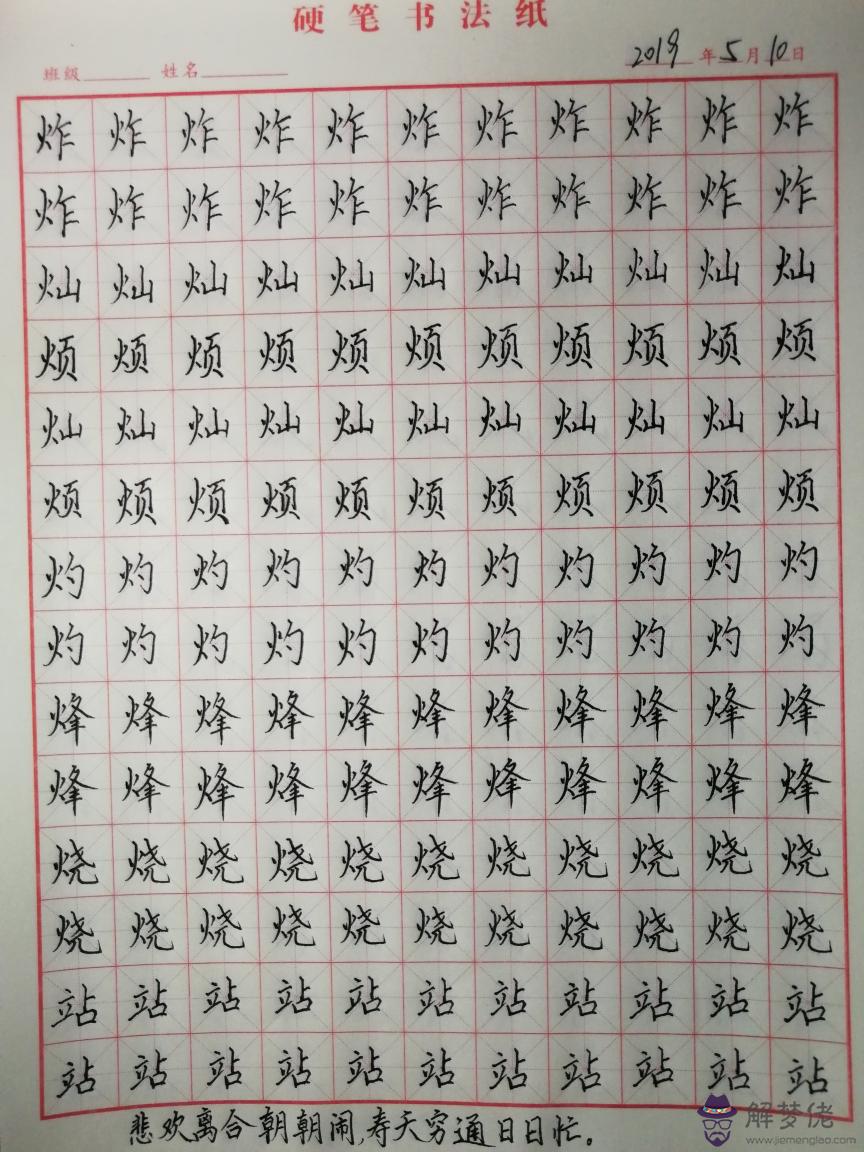 硬笔书法纸
班级 姓名 2019年5月10日
炸炸炸炸炸炸炸炸炸炸炸
炸炸炸炸炸炸炸炸炸炸炸
灿灿灿灿灿灿灿灿灿灿灿
烦烦烦烦烦烦烦烦烦烦烦
灿灿灿灿灿灿灿灿灿灿灿
烦烦烦烦烦烦烦烦烦烦烦
灼灼灼灼灼灼灼灼灼灼灼
灼灼灼灼灼灼灼灼灼灼灼
烽烽烽烽烽烽烽烽烽烽烽
烽烽烽烽烽烽烽烽烽烽烽
烧烧烧烧烧烧烧烧烧烧烧
烧烧烧烧烧烧烧烧烧烧烧
站站站站站站站站站站站
站站站站站站站站站站站
悲欢离合朝朝闹,寿夭穷通日日忙。
解梦佬
www.jiemenglao.com